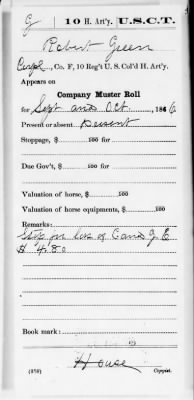 G 10 H. Art'y. U.S.C.T.
Robert Green
Corpl, Co. F, 10 Reg't U. S. Col'd H. Art'y.
Appears on
Company Muster Roll
for Sept and Oct, 1866
Present or absent Present
Stoppage, $ 100 for
Due Gov't, $ 100 for
Valuation of horse, $ 100
Valuation of horse equipments, $ 100
Remarks:
Stop for loss of G. E
$ 4.80
Book mark:
House
(378) Copyist.